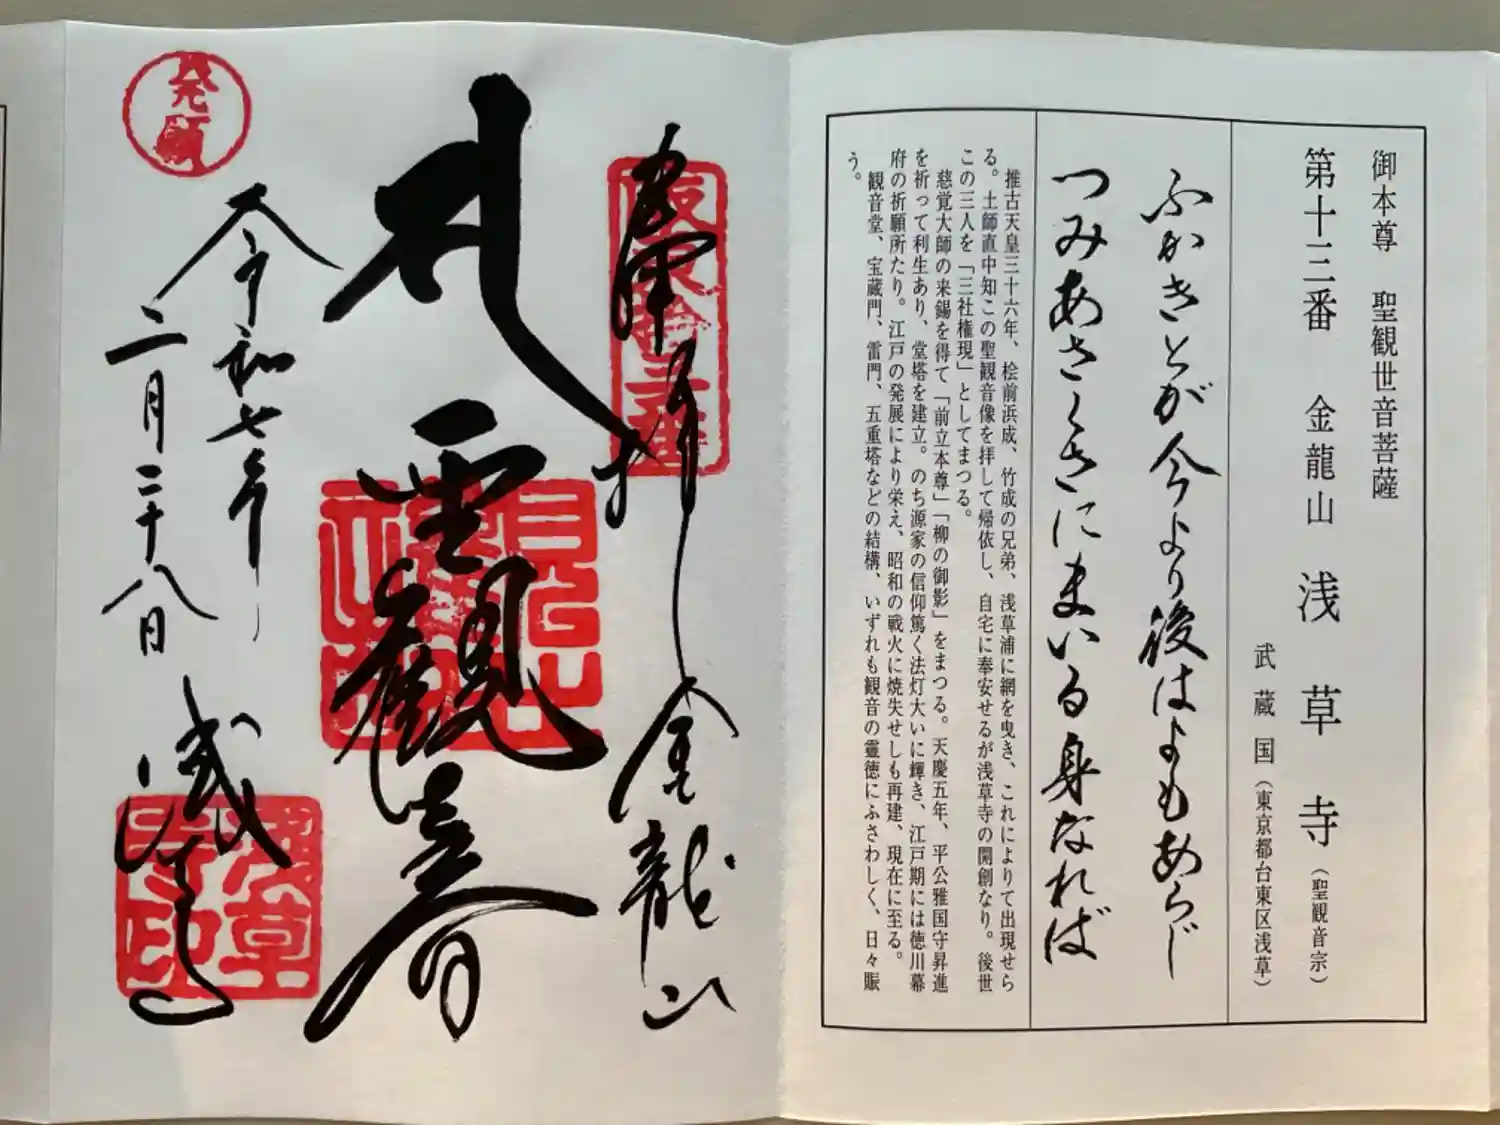 御本尊 聖観世音菩薩
第十三番 金龍山 浅草寺(聖観音宗)
武蔵国(東京都台東区浅草)
ふかきとが今より後はよもあらじ
つみあさくさにまいる身なれば
推古天皇三十六年、桧前浜成、竹成の兄弟、浅草浦に網を曳き、これによりて出現せら
る。土師直中知この聖観音像を拝して帰依し、自宅に奉安せるが浅草寺の開創なり。後世
この三人を「三社権現」としてまつる。
慈覚大師の来錫を得て「前立本尊」「柳の御影」をまつる。天慶五年、平公雅国守昇進
を祈って利生あり、堂塔を建立。のち源家の信仰篤く法灯大いに輝き、江戸期には徳川幕
府の祈願所たり。江戸の発展により栄え、昭和の戦火に焼失せしも再建、現在に至る。
観音堂、宝蔵門、雷門、五重塔などの結構、いずれも観音の霊徳にふさわしく、日々賑
う。
奉拝 金龍山
坂東拾三番
聖観音
発願
令和七年
二月二十八日
浅草寺
浅草寺印